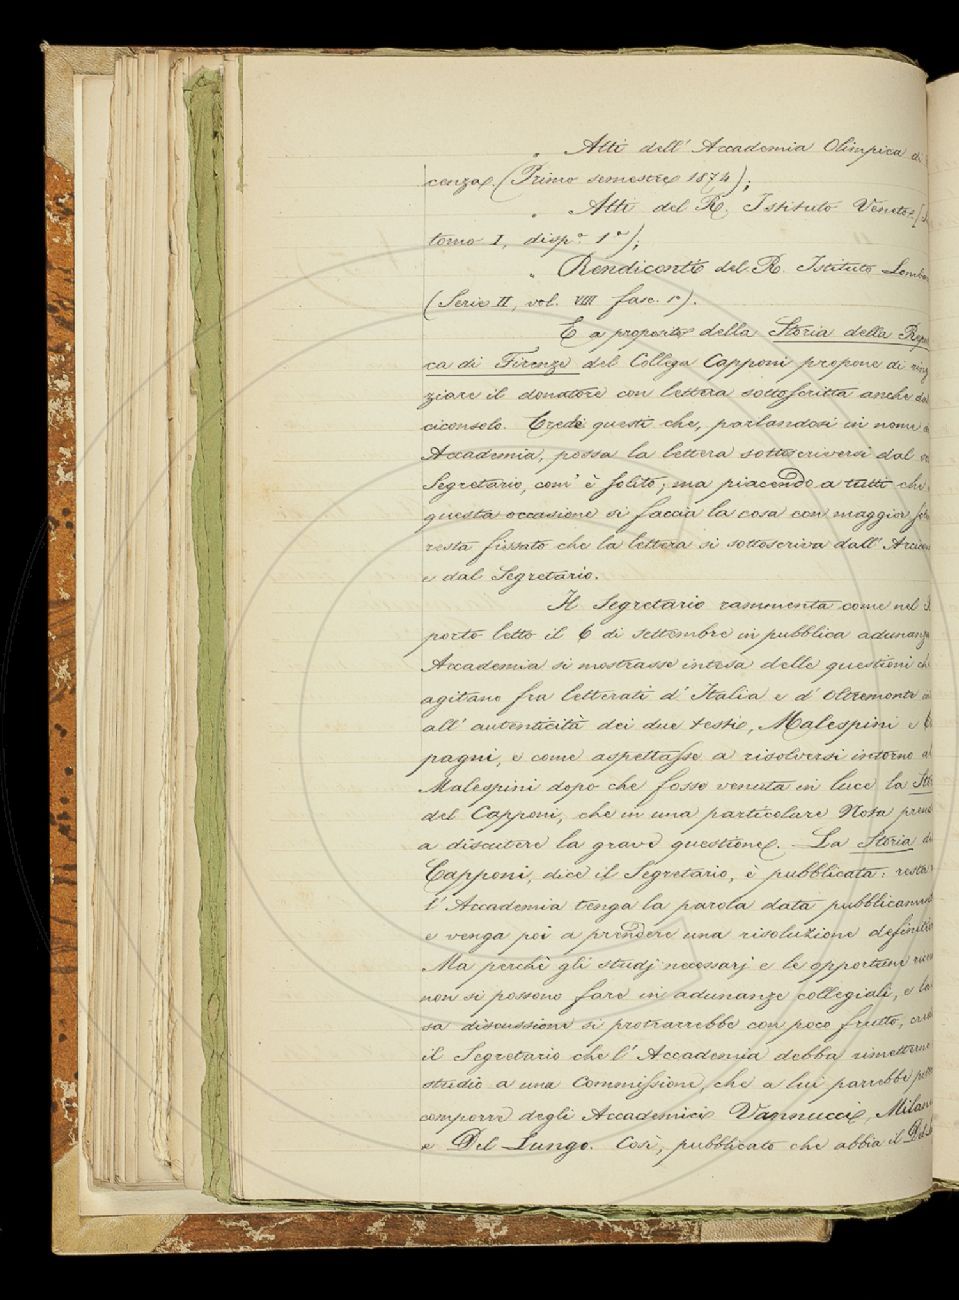 „ Atti dell' Accademia Olimpica di
cenza. (Primo semestre 1874);
„ Atti del R. Istituto Veneto.
tomo I, disp.ª 1ª);
„ Rendiconti del R. Istituto Lomba
(Serie II, vol. VIII fasc. 1º).
E a proposito della Storia della Repu
ca di Firenze del Collega Capponi propone di ring
ziare il donatore con lettera sottoscritta anche dal
ciconsolo. Crede questi che, parlandosi in nome
Accademia, possa la lettera sottoscriversi dal
Segretario, com' è solito; ma piacendo a tutti che
questa occasione si faccia la cosa con maggior sole
resta fissato che la lettera si sottoscriva dall' Arcicon
e dal Segretario.
Il Segretario rammenta come nel
porto letto il 6 di settembre in pubblica adunanza
Accademia si mostrasse intesa delle questioni ch
agitano fra letterati d' Italia e d' Oltremonte
all' autenticità dei due testi, Malespini e
pagni, e come aspettasse a risolversi intorno al
Malespini dopo che fosse venuta in luce la Sto
del Capponi, che in una particolare Nota prend
a discutere la grave questione. – La Storia del
Capponi, dice il Segretario, è pubblicata: resta
l' Accademia tenga la parola data pubblicament
e venga poi a prendere una risoluzione definitiv
Ma perchè gli studj necessarj e le opportune ricer
non si possono fare in adunanze collegiali, e la
sa discussione si protrarrebbe con poco frutto, cred
il Segretario che l' Accademia debba rimetterne
studio a una Commissione, che a lui parrebbe
comporre degli Accademici Vannucci, Milan
e Del Lungo. Così, pubblicato che abbia il Del Lu